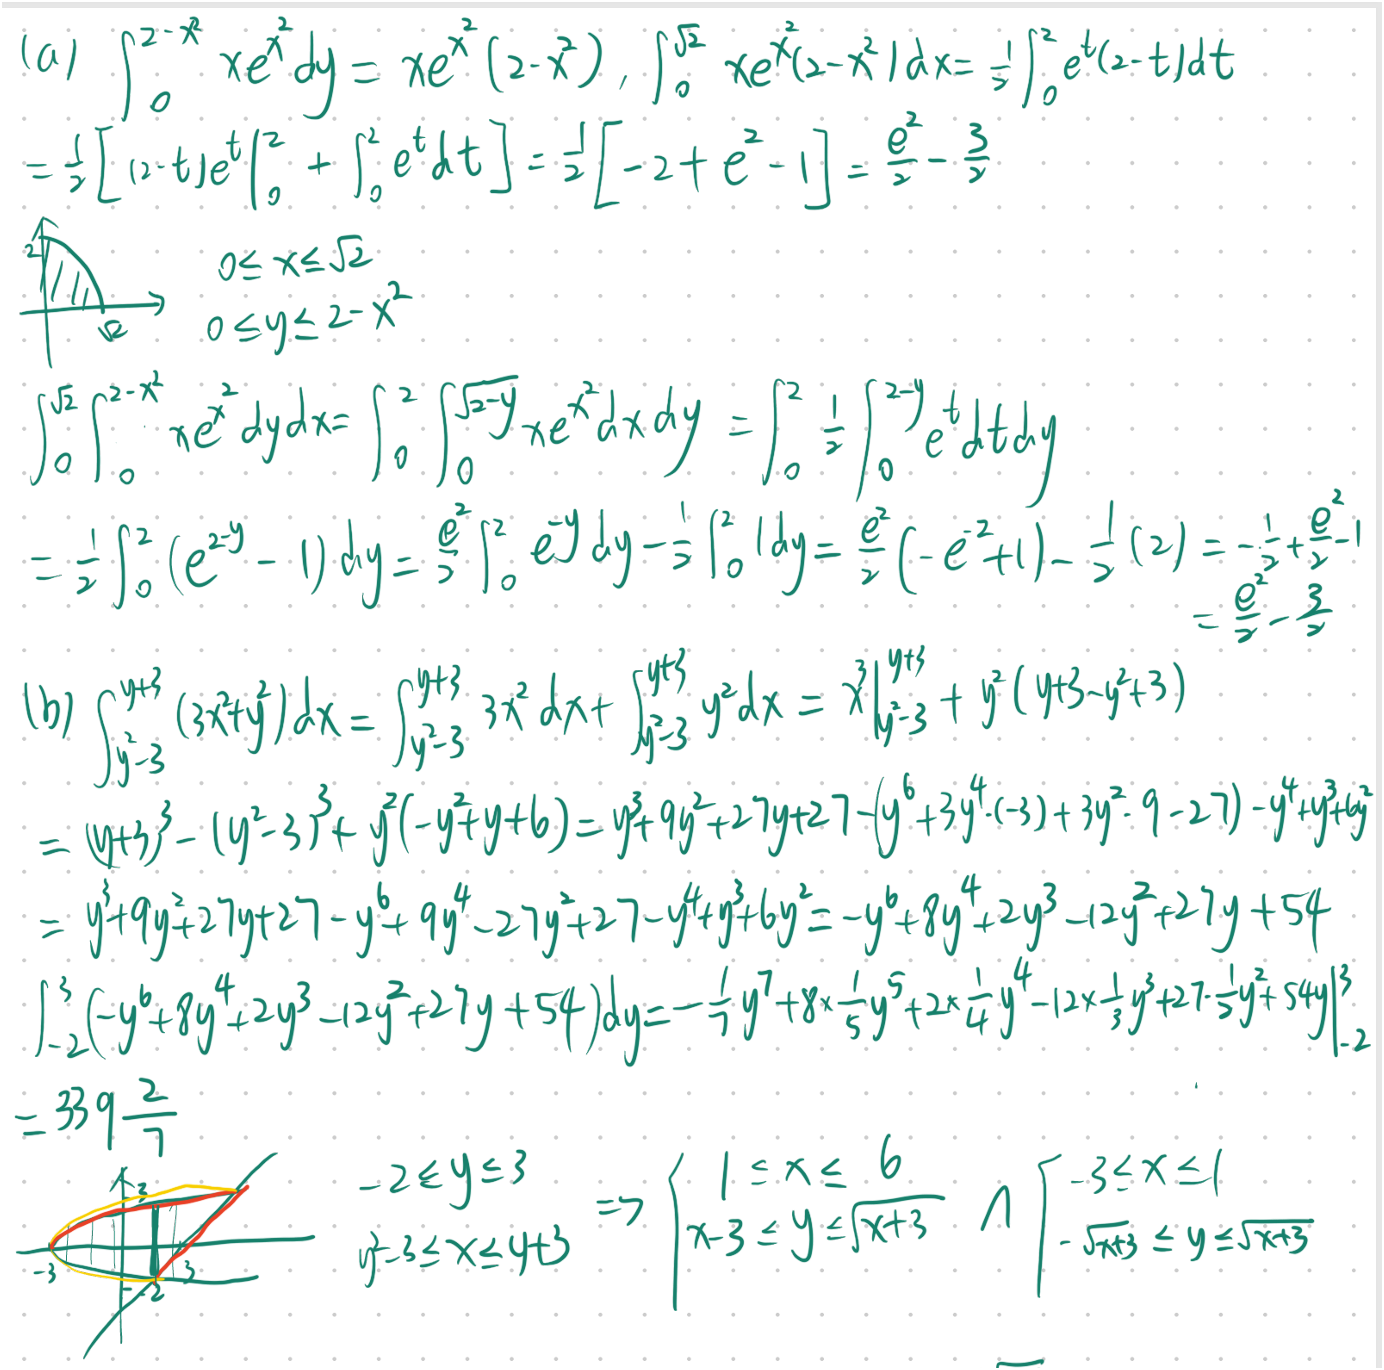 (a) ∫_0^{2-x²} xe^{x²} dy = xe^{x²}(2-x²), ∫_0^{√2} xe^{x²}(2-x²)dx = 1/2 ∫_0^2 e^t(2-t)dt
= 1/2 [(2-t)e^t |_0^2 + ∫_0^2 e^t dt] = 1/2 [-2 + e² - 1] = e²/2 - 3/2
2
√2
0 ≤ x ≤ √2
0 ≤ y ≤ 2-x²
∫_0^{√2} ∫_0^{2-x²} xe^{x²} dy dx = ∫_0^2 ∫_0^{√(2-y)} xe^{x²} dx dy = ∫_0^2 1/2 ∫_0^{2-y} e^t dt dy
= 1/2 ∫_0^2 (e^{2-y} - 1) dy = e²/2 ∫_0^2 e^{-y} dy - 1/2 ∫_0^2 1 dy = e²/2 (-e^{-2}+1) - 1/2 (2) = -1/2 + e²/2 - 1
= e²/2 - 3/2
(b) ∫_{y²-3}^{y+3} (3x²+y²)dx = ∫_{y²-3}^{y+3} 3x² dx + ∫_{y²-3}^{y+3} y² dx = x³|_{y²-3}^{y+3} + y²(y+3-y²+3)
= (y+3)³ - (y²-3)³ + y²(-y²+y+6) = y³+9y²+27y+27-(y⁶+3y⁴·(-3)+3y²·9-27)-y⁴+y³+6y²
= y³+9y²+27y+27-y⁶+9y⁴-27y²+27-y⁴+y³+6y² = -y⁶+8y⁴+2y³-12y²+27y+54
∫_{-2}^3 (-y⁶+8y⁴+2y³-12y²+27y+54)dy = -1/7 y⁷+8×1/5 y⁵+2×1/4 y⁴-12×1/3 y³+27·1/2 y²+54y|_{-2}^3
= 339 2/7
3
-3
3
-2
-2 ≤ y ≤ 3
y²-3 ≤ x ≤ y+3
⇒ { 1 ≤ x ≤ 6 ∧ { -3 ≤ x ≤ 1
x-3 ≤ y ≤ √(x+3) -√(x+3) ≤ y ≤ √(x+3)